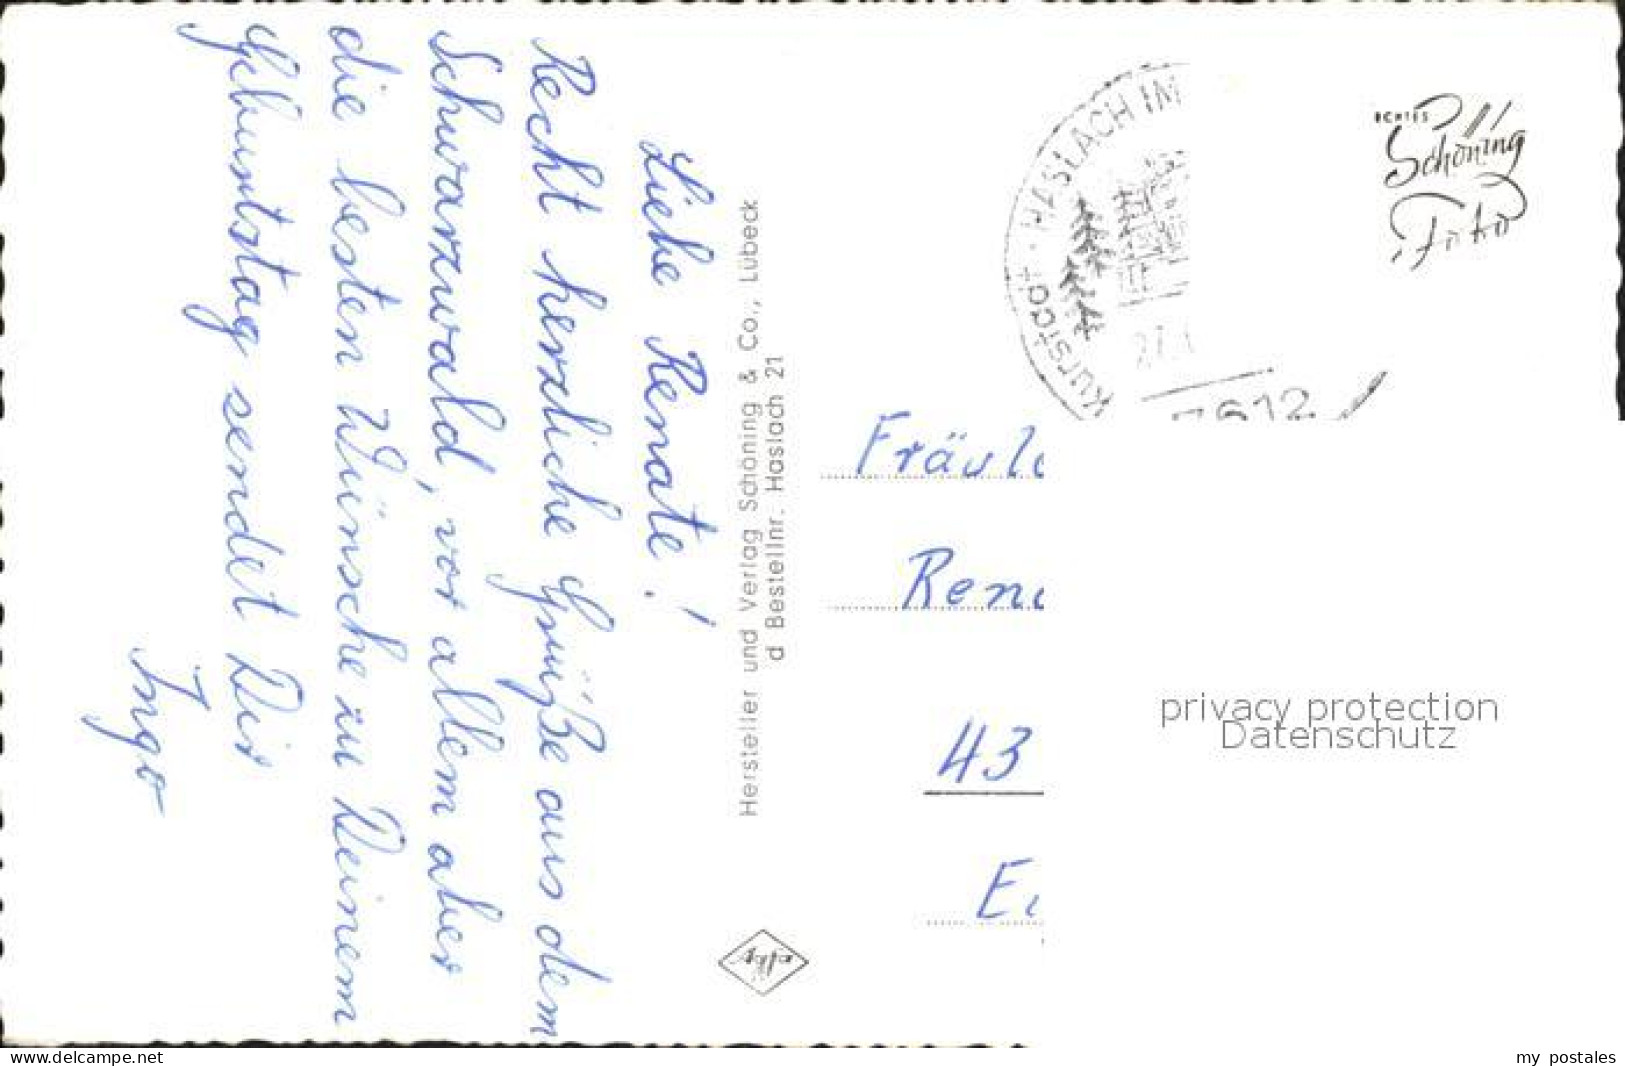 Liebe Renate!
Recht herzliche Grüße aus dem
Schwarzwald, vor allem aber
die besten Wünsche zu Deinem
Geburtstag sendet Dir
Ingo
Hersteller und Verlag Schöning & Co., Lübeck
d Bestellnr. Haslach 21
KURSTADT · HASLACH IM
27.
7612
ECHTES
Schöning
Foto
Fräul
Ren
43
E
privacy protection
Datenschutz
www.delcampe.net
my_postales